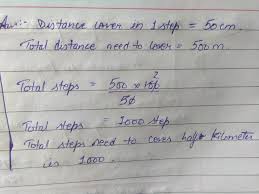 Ans:- Distance cover in 1 step = 50 cm.
Total distance need to cover = 500 m.
Total steps = 500 × 100 2
50
Total steps = 1000 step
Total steps need to cover half Kilometer
is 1000.